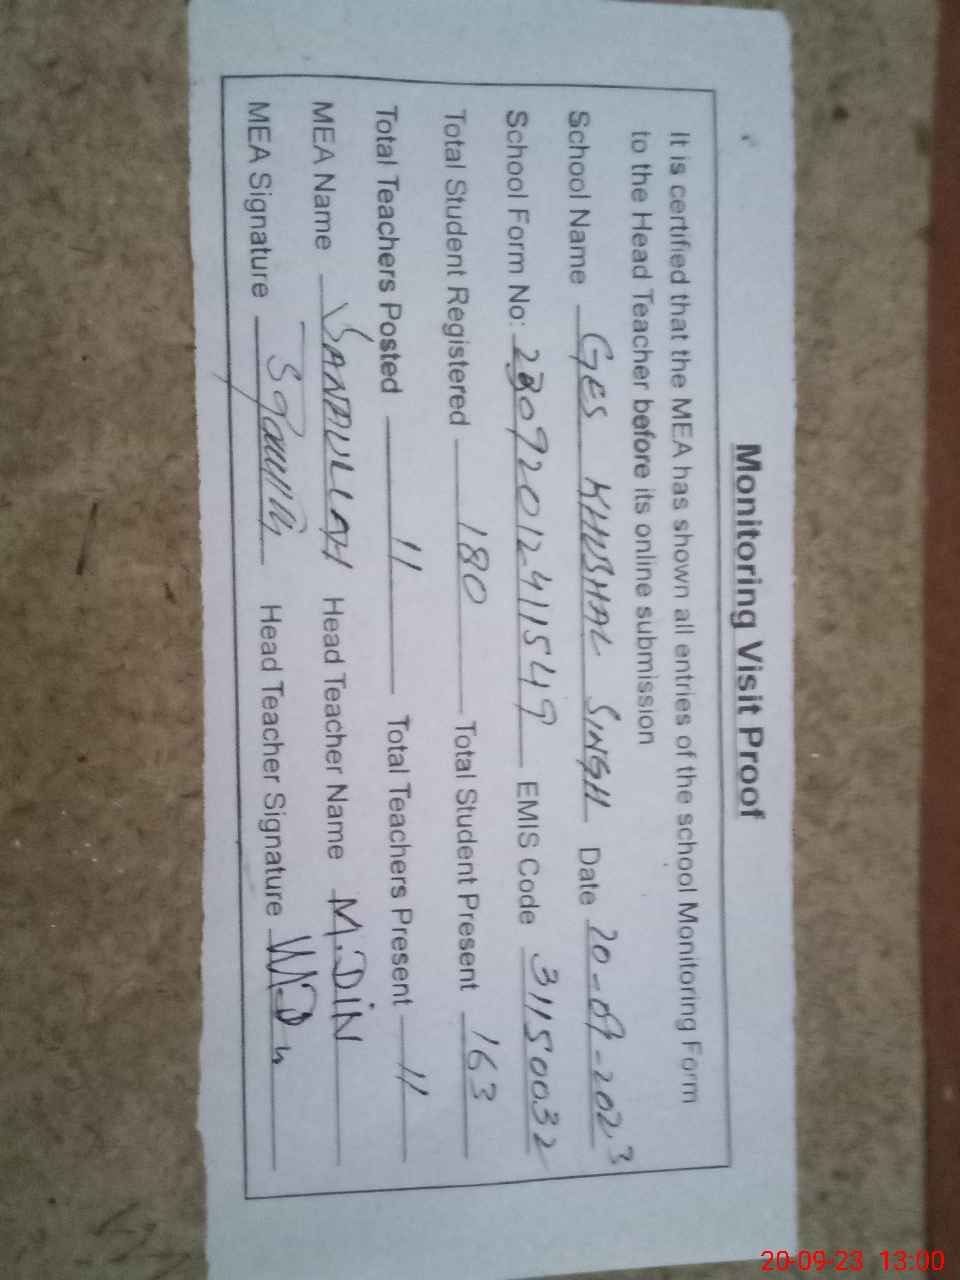 Monitoring Visit Proof
It is certified that the MEA has shown all entries of the school Monitoring Form
to the Head Teacher before its online submission
School Name GES KHUSHAL SINGH Date 20-09-2023
School Form No: 230920124111549 EMIS Code 31150032
Total Student Registered 180 Total Student Present 163
Total Teachers Posted 11 Total Teachers Present 11
MEA Name SANAULLAH Head Teacher Name M.DIN
MEA Signature Head Teacher Signature
20-09-23 13:00